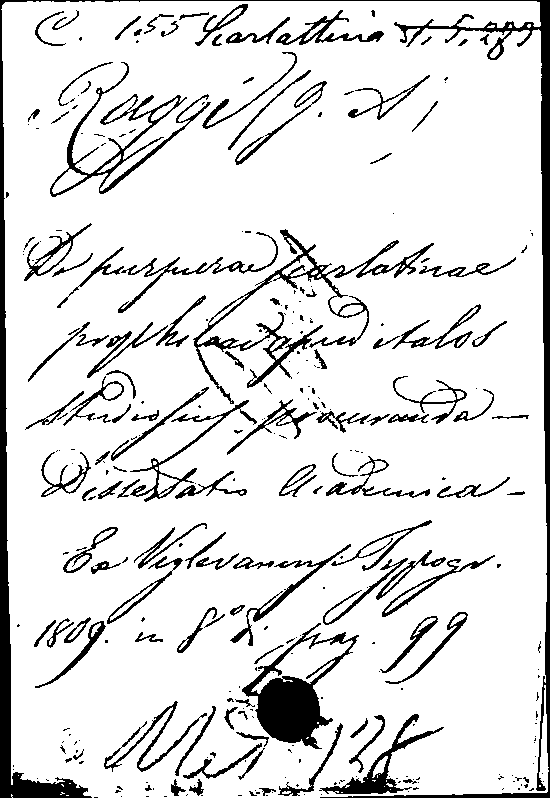 C. 155 Scarlattina St. 5. 289
Raggi (J. A)
De purpurae scarlatinae
prophilaxi apud italos
studiosius procuranda —
Dissertatio Academica —
Ex Viglevanensi Typogr.
1809. in 8° pag. 99
Med. 128